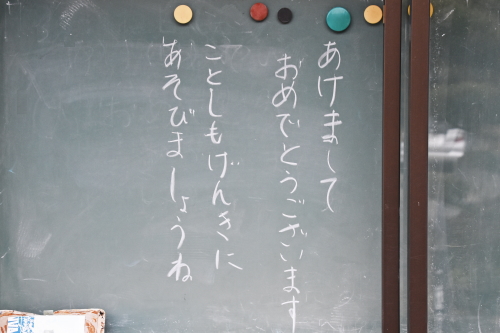 あけまして
おめでとうございます
ことしもげんきに
あそびましょうね